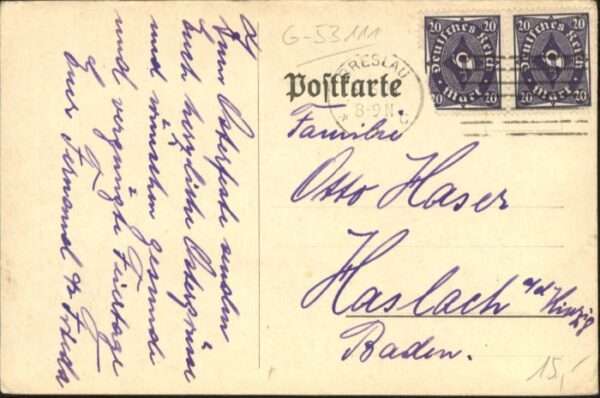 Zum Osterfeste senden
Euch herzliche Ostergrüsse
und wünschen gesunde
und vergnügte Feiertage
Euer Fernand & Frieda
G-53111
Postkarte
BRESLAU
8-9 N
* C
20 20
Deutsches Reich
20 Mark 20
20 20
Deutsches Reich
20 Mark 20
Familie
Otto Haser
Haslach a/d Kinzig
Baden.
15,-